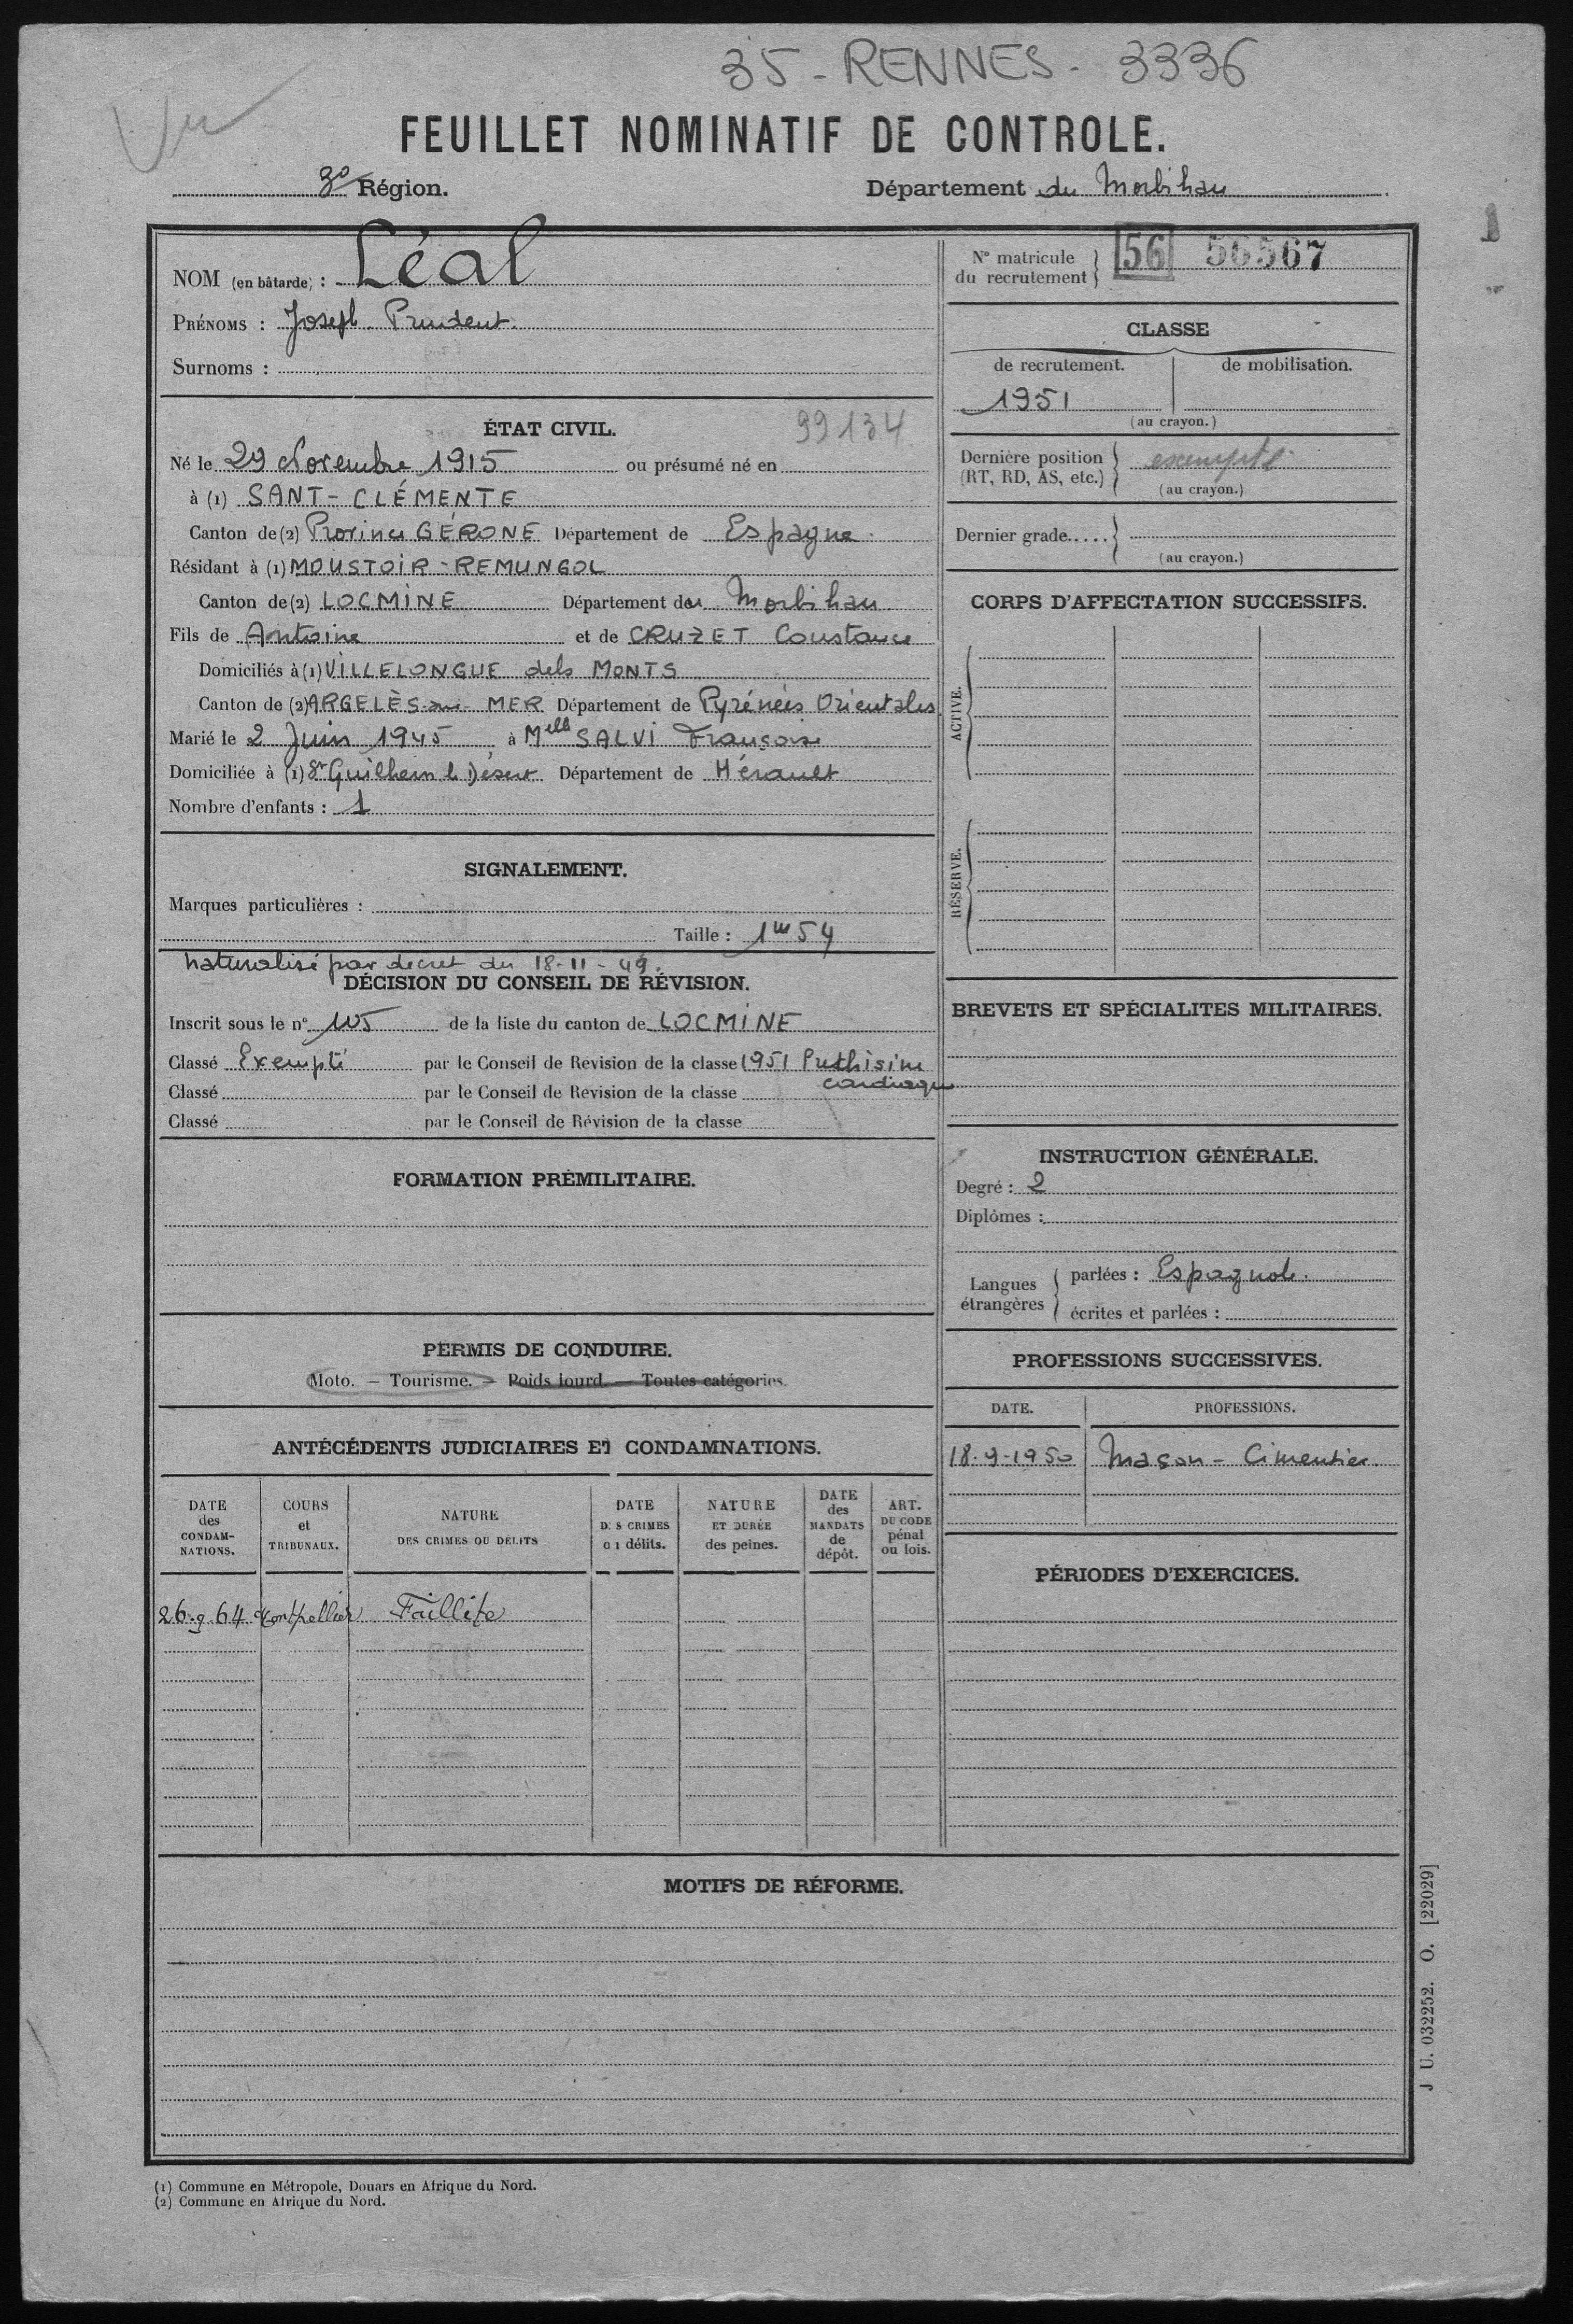 35 - RENNES - 3336
Vu
FEUILLET NOMINATIF DE CONTROLE.
3e Région.
Département du Morbihan
NOM (en bâtarde) : Léal
PRÉNOMS : Joseph Prudent.
Surnoms :
ÉTAT CIVIL. 99134
Né le 29 Novembre 1915 ou présumé né en
à (1) SANT-CLÉMENTE
Canton de (2) Province GÉRONE Département de Espagne.
Résidant à (1) MOUSTOIR-REMUNGOL
Canton de (2) LOCMINE Département du Morbihan
Fils de Antoine et de CRUZET Constance
Domiciliés à (1) VILLELONGUE dels MONTS
Canton de (2) ARGELÈS-sur-MER Département de Pyrénées Orientales
Marié le 2 Juin 1945 à Melle SALVI Françoise
Domiciliée à (1) St Guilhem le Désert Département de Hérault
Nombre d'enfants : 1
SIGNALEMENT.
Marques particulières :
Taille : 1m54
naturalisé par décret du 18-11-49.
DÉCISION DU CONSEIL DE RÉVISION.
Inscrit sous le n° 105 de la liste du canton de LOCMINE
Classé Exempté par le Conseil de Révision de la classe 1951
Classé par le Conseil de Révision de la classe cardiaque
Classé par le Conseil de Révision de la classe
FORMATION PRÉMILITAIRE.
PERMIS DE CONDUIRE.
Moto. — Tourisme. — Poids lourd. — Toutes catégories.
ANTÉCÉDENTS JUDICIAIRES ET CONDAMNATIONS.
DATE des CONDAMNATIONS.
COURS et TRIBUNAUX.
NATURE DES CRIMES OU DÉLITS
DATE DES CRIMES ou délits.
NATURE ET DURÉE des peines.
DATE des MANDATS de dépôt.
ART. DU CODE pénal ou lois.
26.9.64 Montpellier Faillite
N° matricule du recrutement 56 56567
CLASSE
de recrutement. de mobilisation.
1951
(au crayon.)
Dernière position (RT, RD, AS, etc.) exempté
(au crayon.)
Dernier grade.....
(au crayon.)
CORPS D'AFFECTATION SUCCESSIFS.
ACTIVE.
RÉSERVE.
BREVETS ET SPÉCIALITES MILITAIRES.
INSTRUCTION GÉNÉRALE.
Degré : 2
Diplômes :
Langues étrangères
parlées : Espagnole.
écrites et parlées :
PROFESSIONS SUCCESSIVES.
DATE. PROFESSIONS.
18-9-1950 Maçon - Cimentier
PÉRIODES D'EXERCICES.
MOTIFS DE RÉFORME.
J U. 032252. O. [22029]
(1) Commune en Métropole, Douars en Afrique du Nord.
(2) Commune en Afrique du Nord.